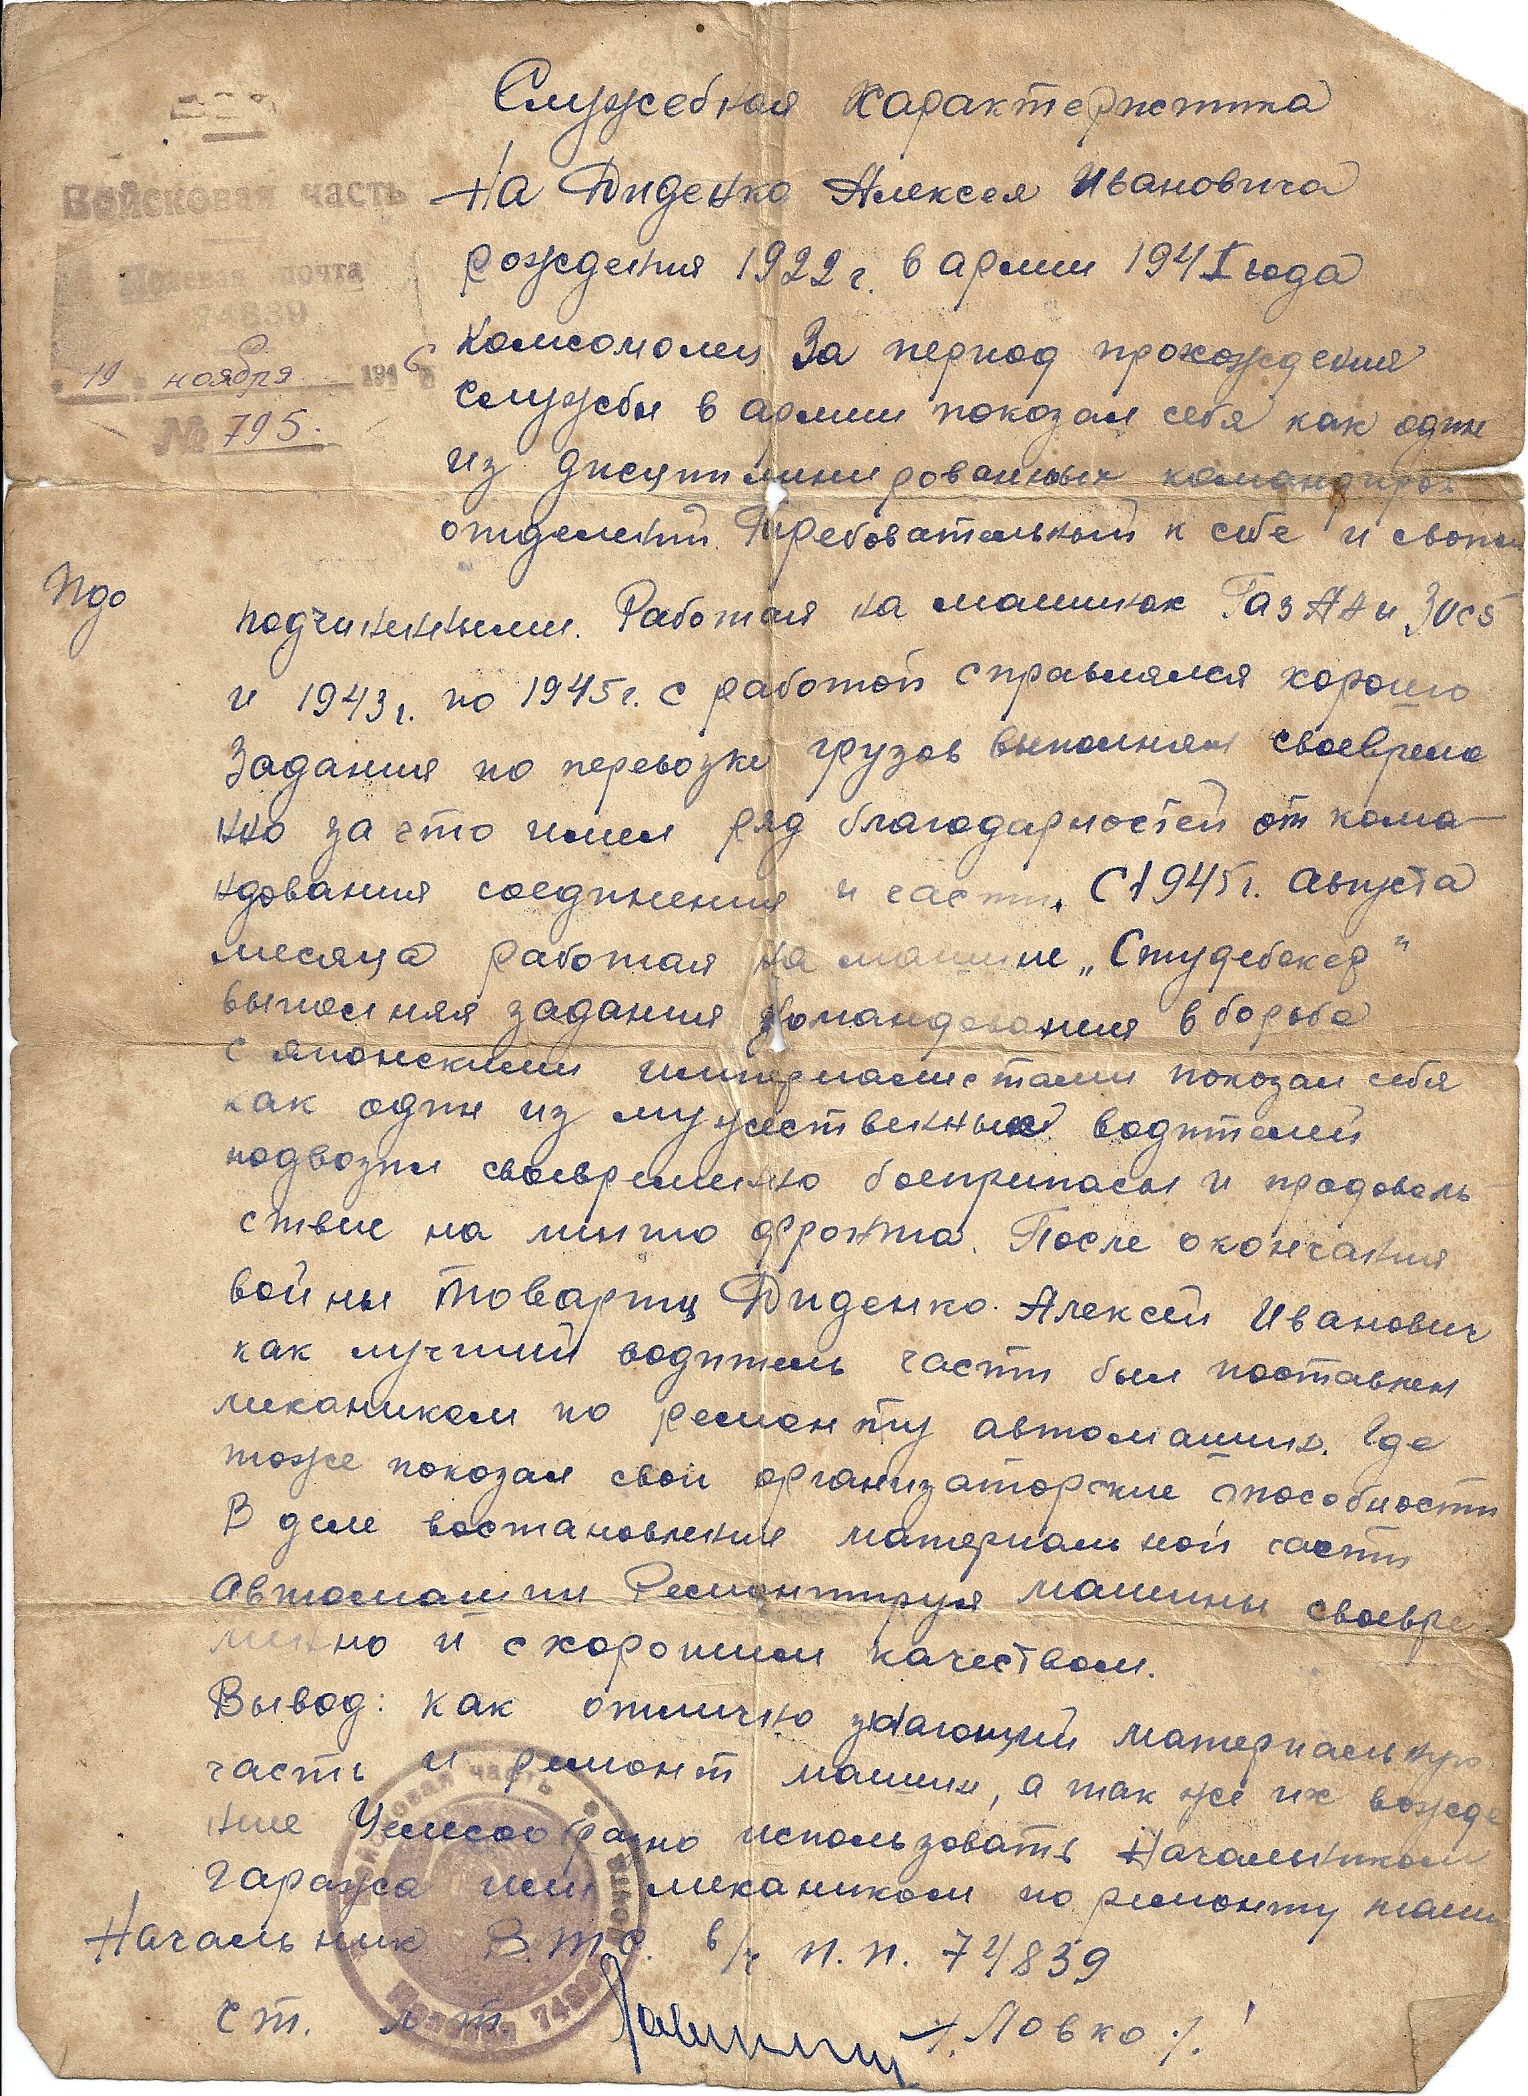 Служебная характеристика
Войсковая часть
На Диденко Алексея Ивановича
Полевая почта
74839
рождения 1922 г. в армии 1941 года
19 ноября 1946
№ 795.
Комсомолец За период прохождения
службы в армии показал себя как один
из дисциплинированных командиров
отделений. Требовательный к себе и своим
подчиненными. Работая на машинах Газ АА и Зис5
и 1943 г. по 1945 г. с работой справлялся хорошо
Задания по перевозке грузов выполнял своевреме
нно за что имел ряд благодарностей от кома-
ндования соединения и части. С 1945 г. августа
месяца работая на машине „Студебекер"
выполняя задания командования в борьбе
с японскими империалистами показал себя
как один из мужественных водителей
подвозил своевременно боеприпасы и продоволь-
ствие на линию фронта. После окончания
войны товарищ Диденко. Алексей Иванович
как лучший водитель части был поставлен
механиком по ремонту автомашин. Где
тоже показал свои организаторские способности
В деле востановления материальной части
Автомашин Ремонтируя машины своевре
менно и с хорошим качеством.
Вывод: Как отлично знающий материальную
часть и ремонт машин, а так же их вожде
ние Целесообразно использовать Начальником
гаража или механиком по ремонту машин
Начальник В.Т.О. в/ч п.п. 74839
ст. л-т. /. Ловко ./.
Войсковая часть Полевая почта 74839